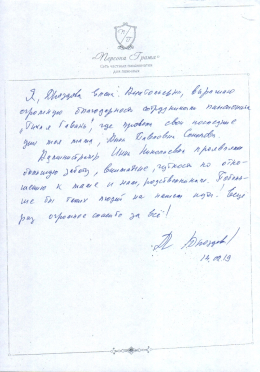 «Персона Грата»
Сеть частных пансионатов
для пожилых
Я, выражаю
огромную благодарность сотрудникам пансионата
"Тихая Гавань", где провела свои последние
дни моя мама,
Администратор Инна Николаевна проявляла
большую заботу, внимание, чуткость по отно-
шению к маме и нам, родственникам. Поболь-
ше бы таких людей на нашем пути! Еще
раз огромное спасибо за всё!
14.08.19